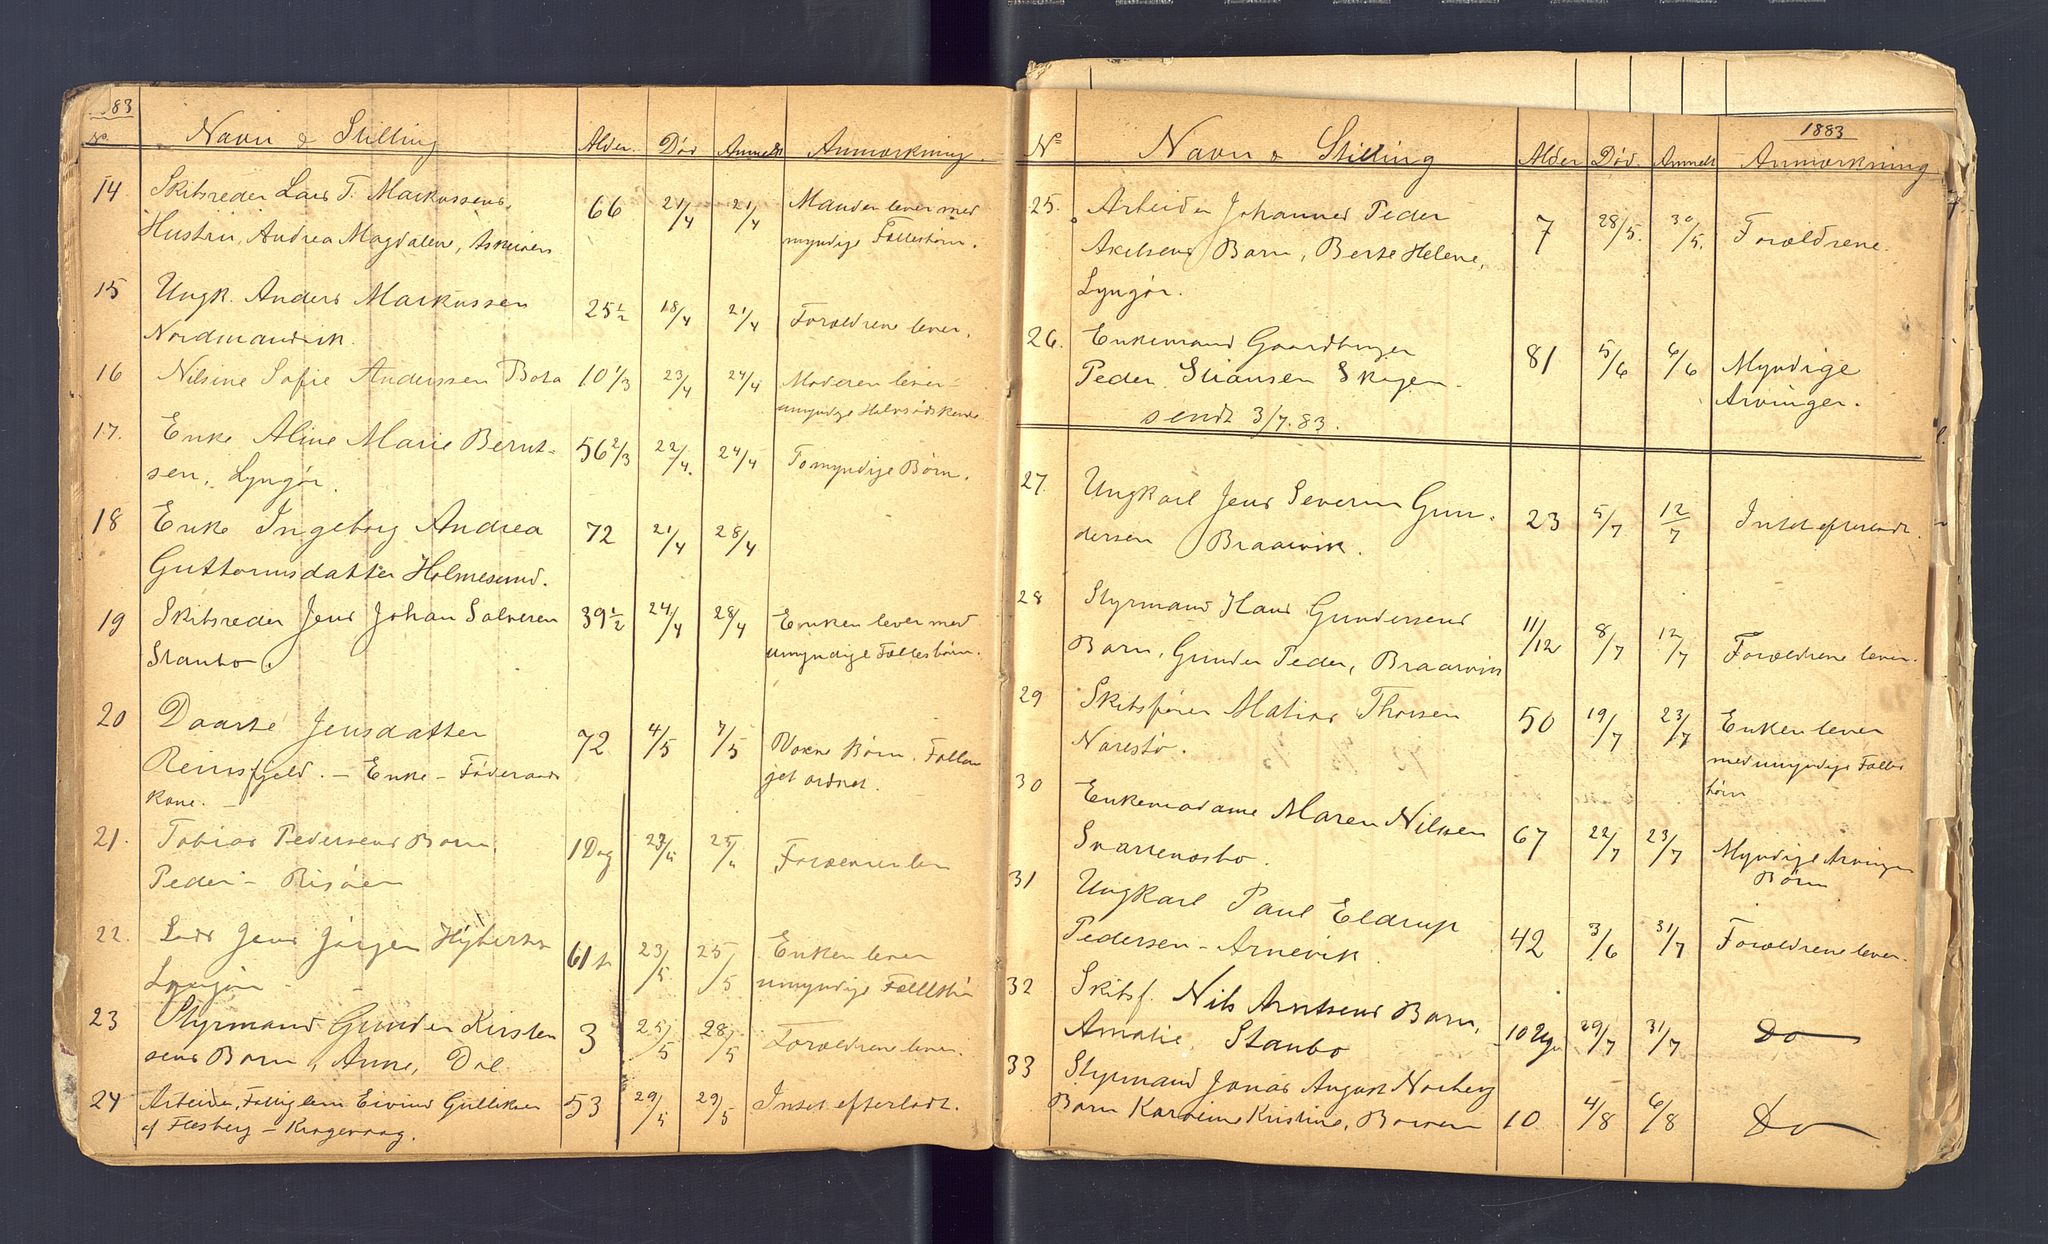 83
No. Navn & Stilling Alder Død Anmeldt Anmærkning.
14 Skibsreder Lars T. Markussens
Hustru, Andrea Magdalene, Askerøen 66 21/4 21/4 Manden lever med
myndige Fællesbørn.
15 Ungk. Anders Markussen
Nordmandvik. 25½ 18/4 21/4 Forældrene lever.
16 Nilsine Sofie Anderssen Bota 10 1/3 23/4 24/4 Moderen lever
umyndige Halvsødskende
17. Enke Aline Marie Bernt-
sen, Lyngør. 56 2/3 22/4. 24/4 To myndige Børn.
18 Enke Ingeborg Andrea
Guttormsdatter Holmesund. 72 21/4 28/4
19 Skibsreder Jens Johan Salvesen
Staubo. 39½ 24/4 28/4 Enken lever med
umyndige Fællesbørn.
20 Daarte Jensdatter
Reinsfjeld. - Enke - Føderaads
kone. - 72 4/5 7/5 Voxne Børn.
ordnet.
21. Tobias Pedersens Barn,
Peder - Risøen 1 Dag
22. Lods Jens Jørgen
Lyngør - 61 23/5 25/5 Enken lever
umyndige Fællesbør
23 Styrmand Gunder Kirsten
sens Barn, Anne, Dal 3 25/5 28/5 Forældrene lever.
24 Arbeider, Fattiglem Eivind Gulliksen
af Flesberg - Kragevaag. 53 29/5 29/5 Intet efterladt.
1883
No Navn & Stilling Alder Død. Anmeldt Anmærkning
25. Arbeider Johannes Peder
Axelsens Barn, Berte Helene,
Lyngør. 7 28/5. 30/5. Forældrene.
26. Enkemand Gaardbruger
Peder Skagen. 81 5/6 6/6 Myndige
Arvinger.
sendt 3/7. 83.
27. Ungkarl Jens Severin Gun-
dersen Braarvik. 23 5/7 12/7 Intet efterladt.
28 Styrmand Hans Gundersens
Barn, Gunder Peder, Braarvik 11/12 8/7 12/7 Forældrene lever.
29 Skibsfører Matias Thorsen
Narestø. 50 19/7 23/7 Enken lever
med umyndige Fælles
børn
30 Enkemadame Maren Nilssen
67 22/7 23/7 Myndige Arvinger
Børn
31 Ungkarl Paul Eldrup
Pedersen - Arnevik. 42 3/6 31/7 Forældrene lever.
32 Skibsf. Nils Arntsens Barn,
Amalie, Staubo 10 Uger 29/7 31/7 Do
33 Styrmand Jonas August Norberg
Barn Karoline Kristine, Borøen 10 4/8 6/8 Do